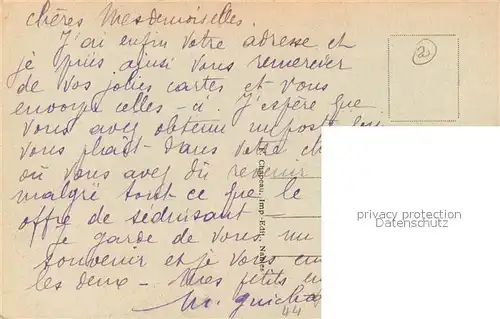 chères Mesdemoiselles.
J'ai enfin votre adresse et
je puis ainsi vous remercier
de vos jolies cartes et vous
envoyer celles-ci. J'espère que
vous avez obtenu un poste
vous plaît dans votre
où vous avez dû revenir
malgré tout ce que le
offre de séduisant
Je garde de vous un
souvenir et je vous
les deux. Mes petits
M.
2
Chapeau, Imp.-Edit., Nantes
44
privacy protection
Datenschutz